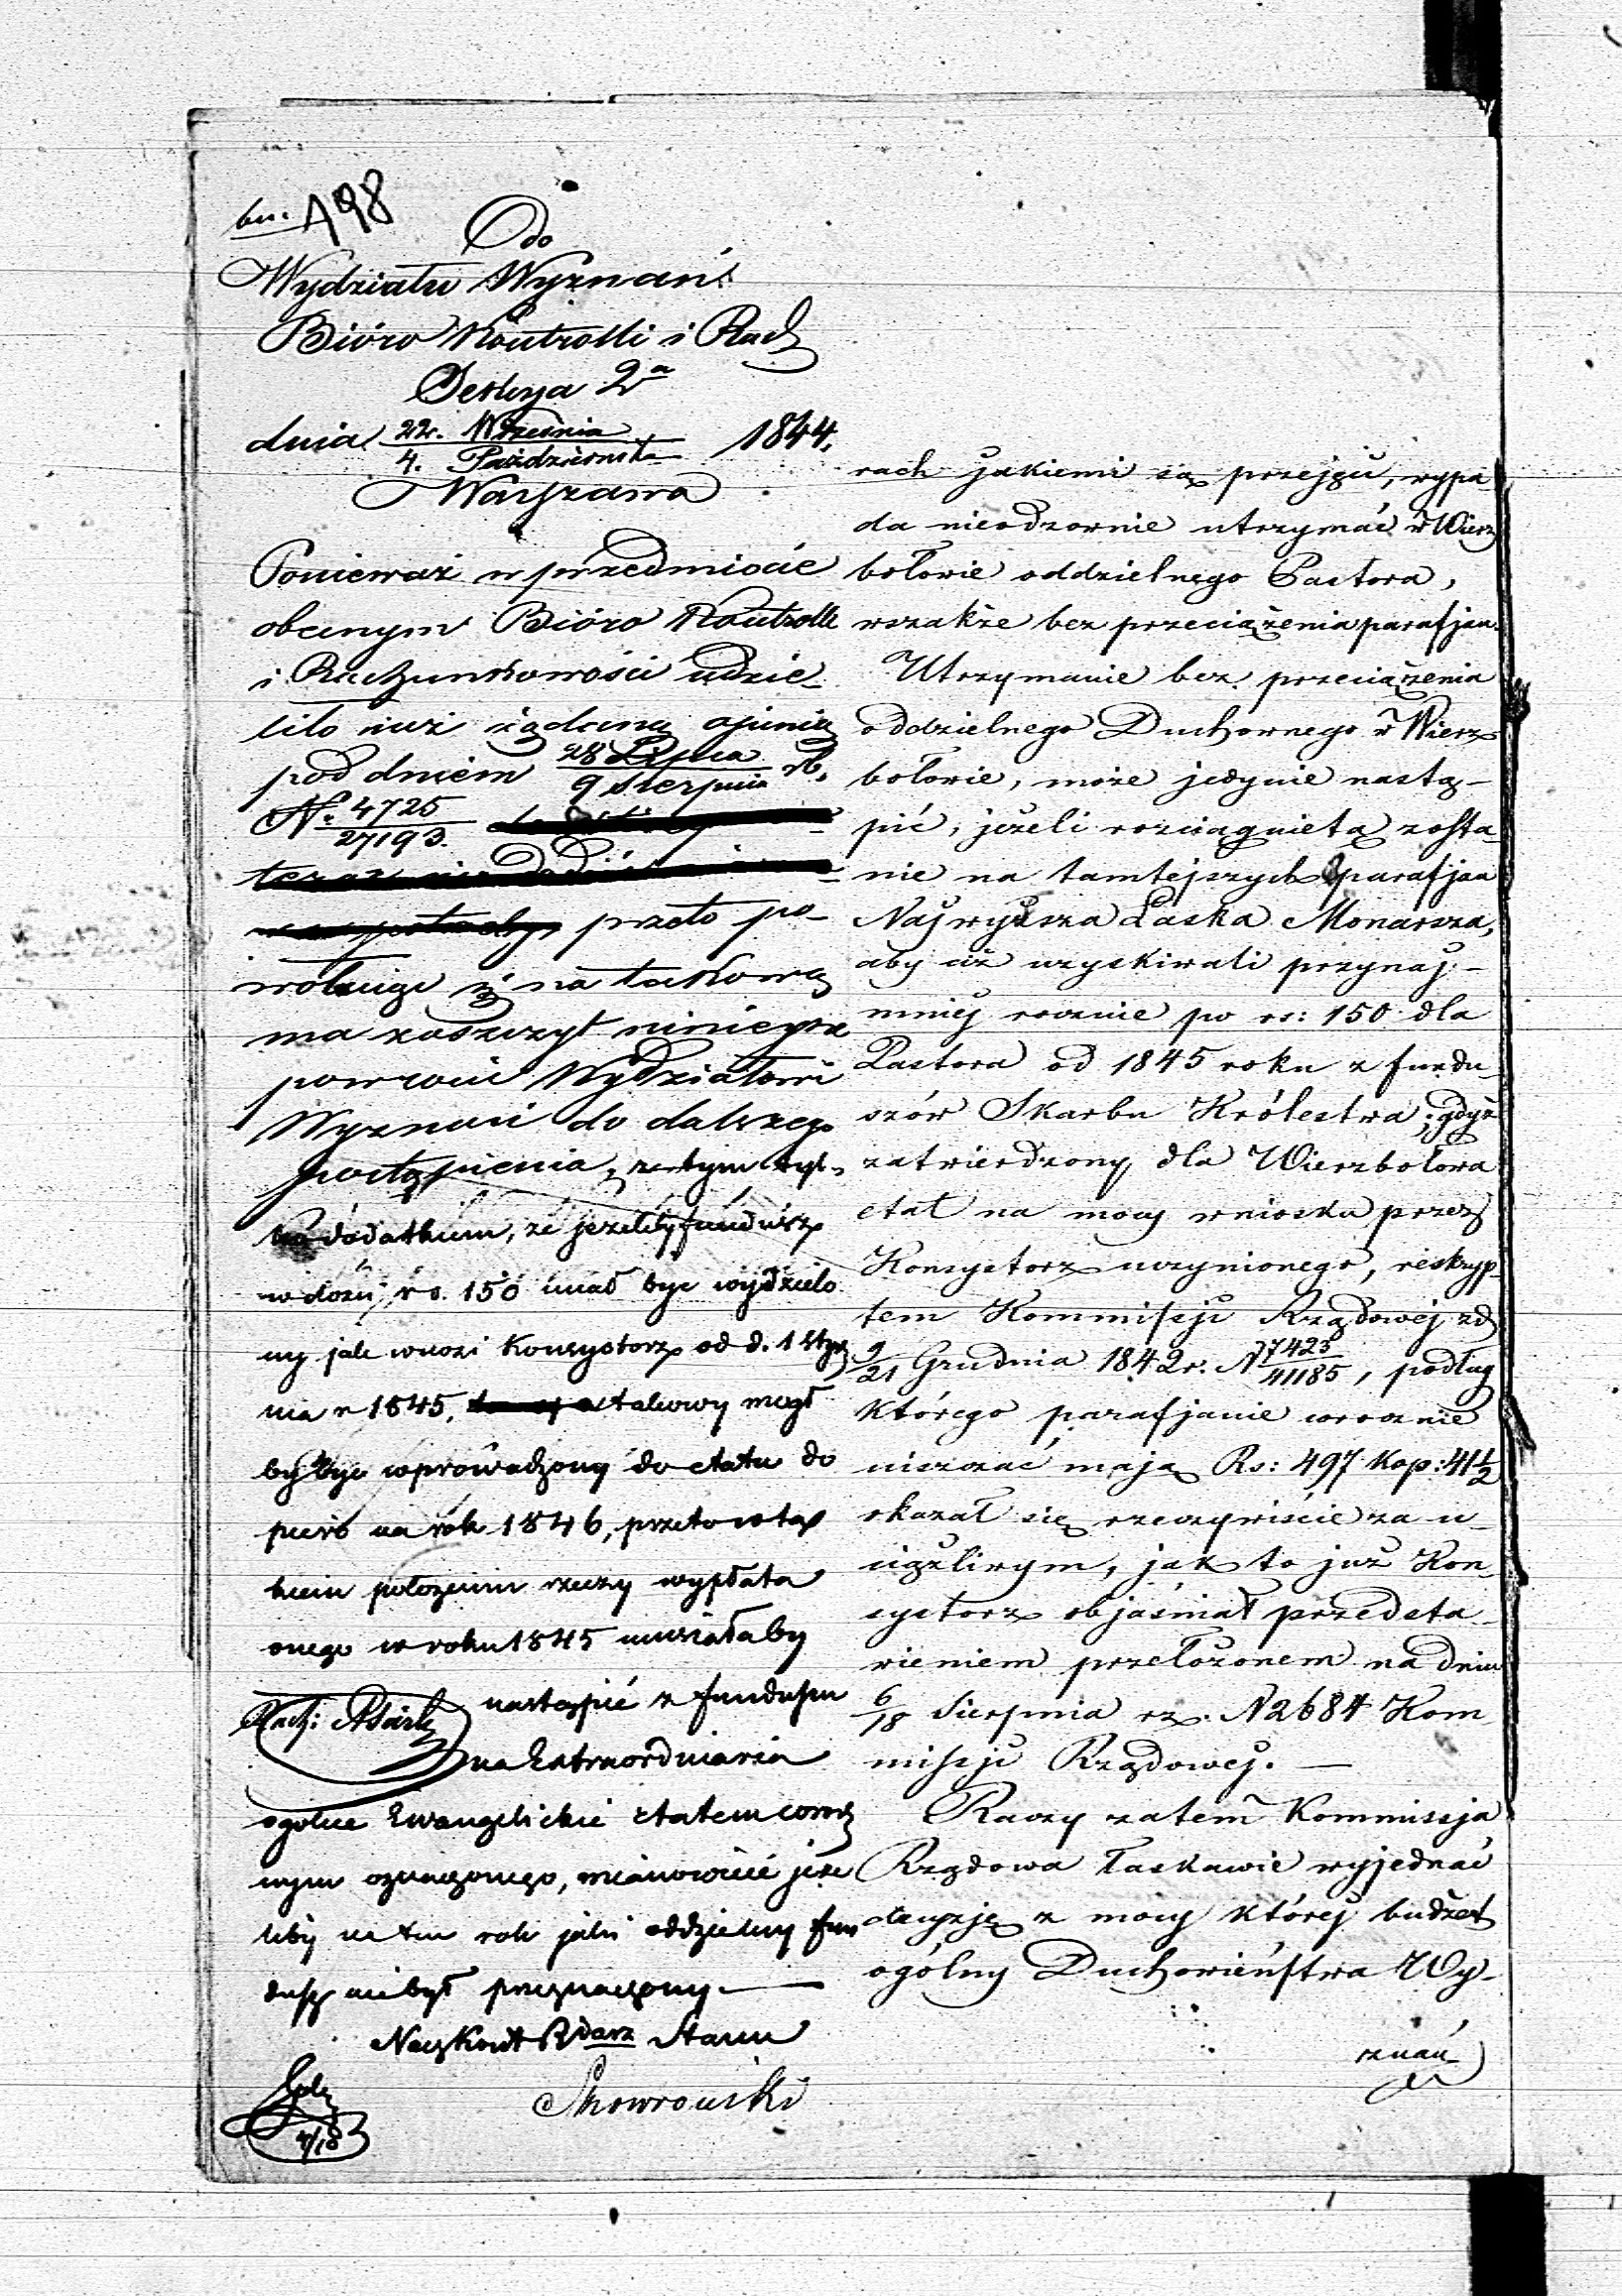 498
Do
Wydziału Wyznań
Bióro Kontrolli i Rach
Sekcya 2a
dnia 22. Września / 4. Października 1844.
Warszawa
Ponieważ w przedmiocie
obecnym Bióro Kontrolli
i Rachunkowości udzie-
liło już żądaną opinią
pod dniem 28 Lipca / 9 Sierpnia rb.
No. 4725 / 27193.
przeto po-
wołując się na takową
ma zaszczyt niniejsze
powrócić Wydziałowi
Wyznań do dalszego
postąpienia, z tym tyl-
ko dodatkiem, że jeżeliby fundusz
w ilości rs. 150 miał być wydzielo
ny jak wnosi Konsystorz od d. 1 Stycz
nia r 1845, takowy mógł
by być wprowadzony do etatu do
piero na rok 1846, przeto w ta
kiem położeniu rzeczy wypłata
onego w roku 1845 musiałaby
nastąpić z funduszu
na Extraordinaria
ogólne Ewangelickie etatem corocz
nym oznaczonego, mianowicie jeże
liby na ten rok jaki oddzielny fun
dusz nie był przeznaczony.
Nacz Kont Rdarz Stanu
Skowroński
4/10
rach jakiemi są przejęci, wypa-
da nieodzownie utrzymać w Wierz
bołowie oddzielnego Pastora,
wszakże bez przeciążenia parafjan.
Utrzymanie bez przeciążenia
oddzielnego Duchownego w Wierz
bołowie, może jedynie nastą-
pić, jeżeli rozciągnięta zosta-
nie na tamtejszych parafjan
Najwyższa Łaska Monarsza,
aby iż uzyskiwali przynaj-
mniej rocznie po rs: 150 dla
Pastora od 1845 roku z fundu-
szów Skarbu Królestwa; gdyż
zatwierdzony dla Wierzbołowa
etat na mocy wniosku przez
Konsystorz uczynionego, reskryp-
tem Kommissji Rządowej zd
9/21 Grudnia 1842 r. N 7423/41185, podług
którego parafjanie corocznie
uiszczać mają Rs: 497 kop: 41 1/2
okazał się rzeczywiście za u-
ciążliwym, jak to już Kon-
systorz objaśniał przedsta-
wieniem przełożonem na dniu
6/18 Sierpnia rz. N 2684 Kom
missji Rządowej. —
Raczy zatem Kommissja
Rządowa łaskawie wyjednać
decyzję z mocy której budżet
ogólny Duchowieństwa Wy-
znań